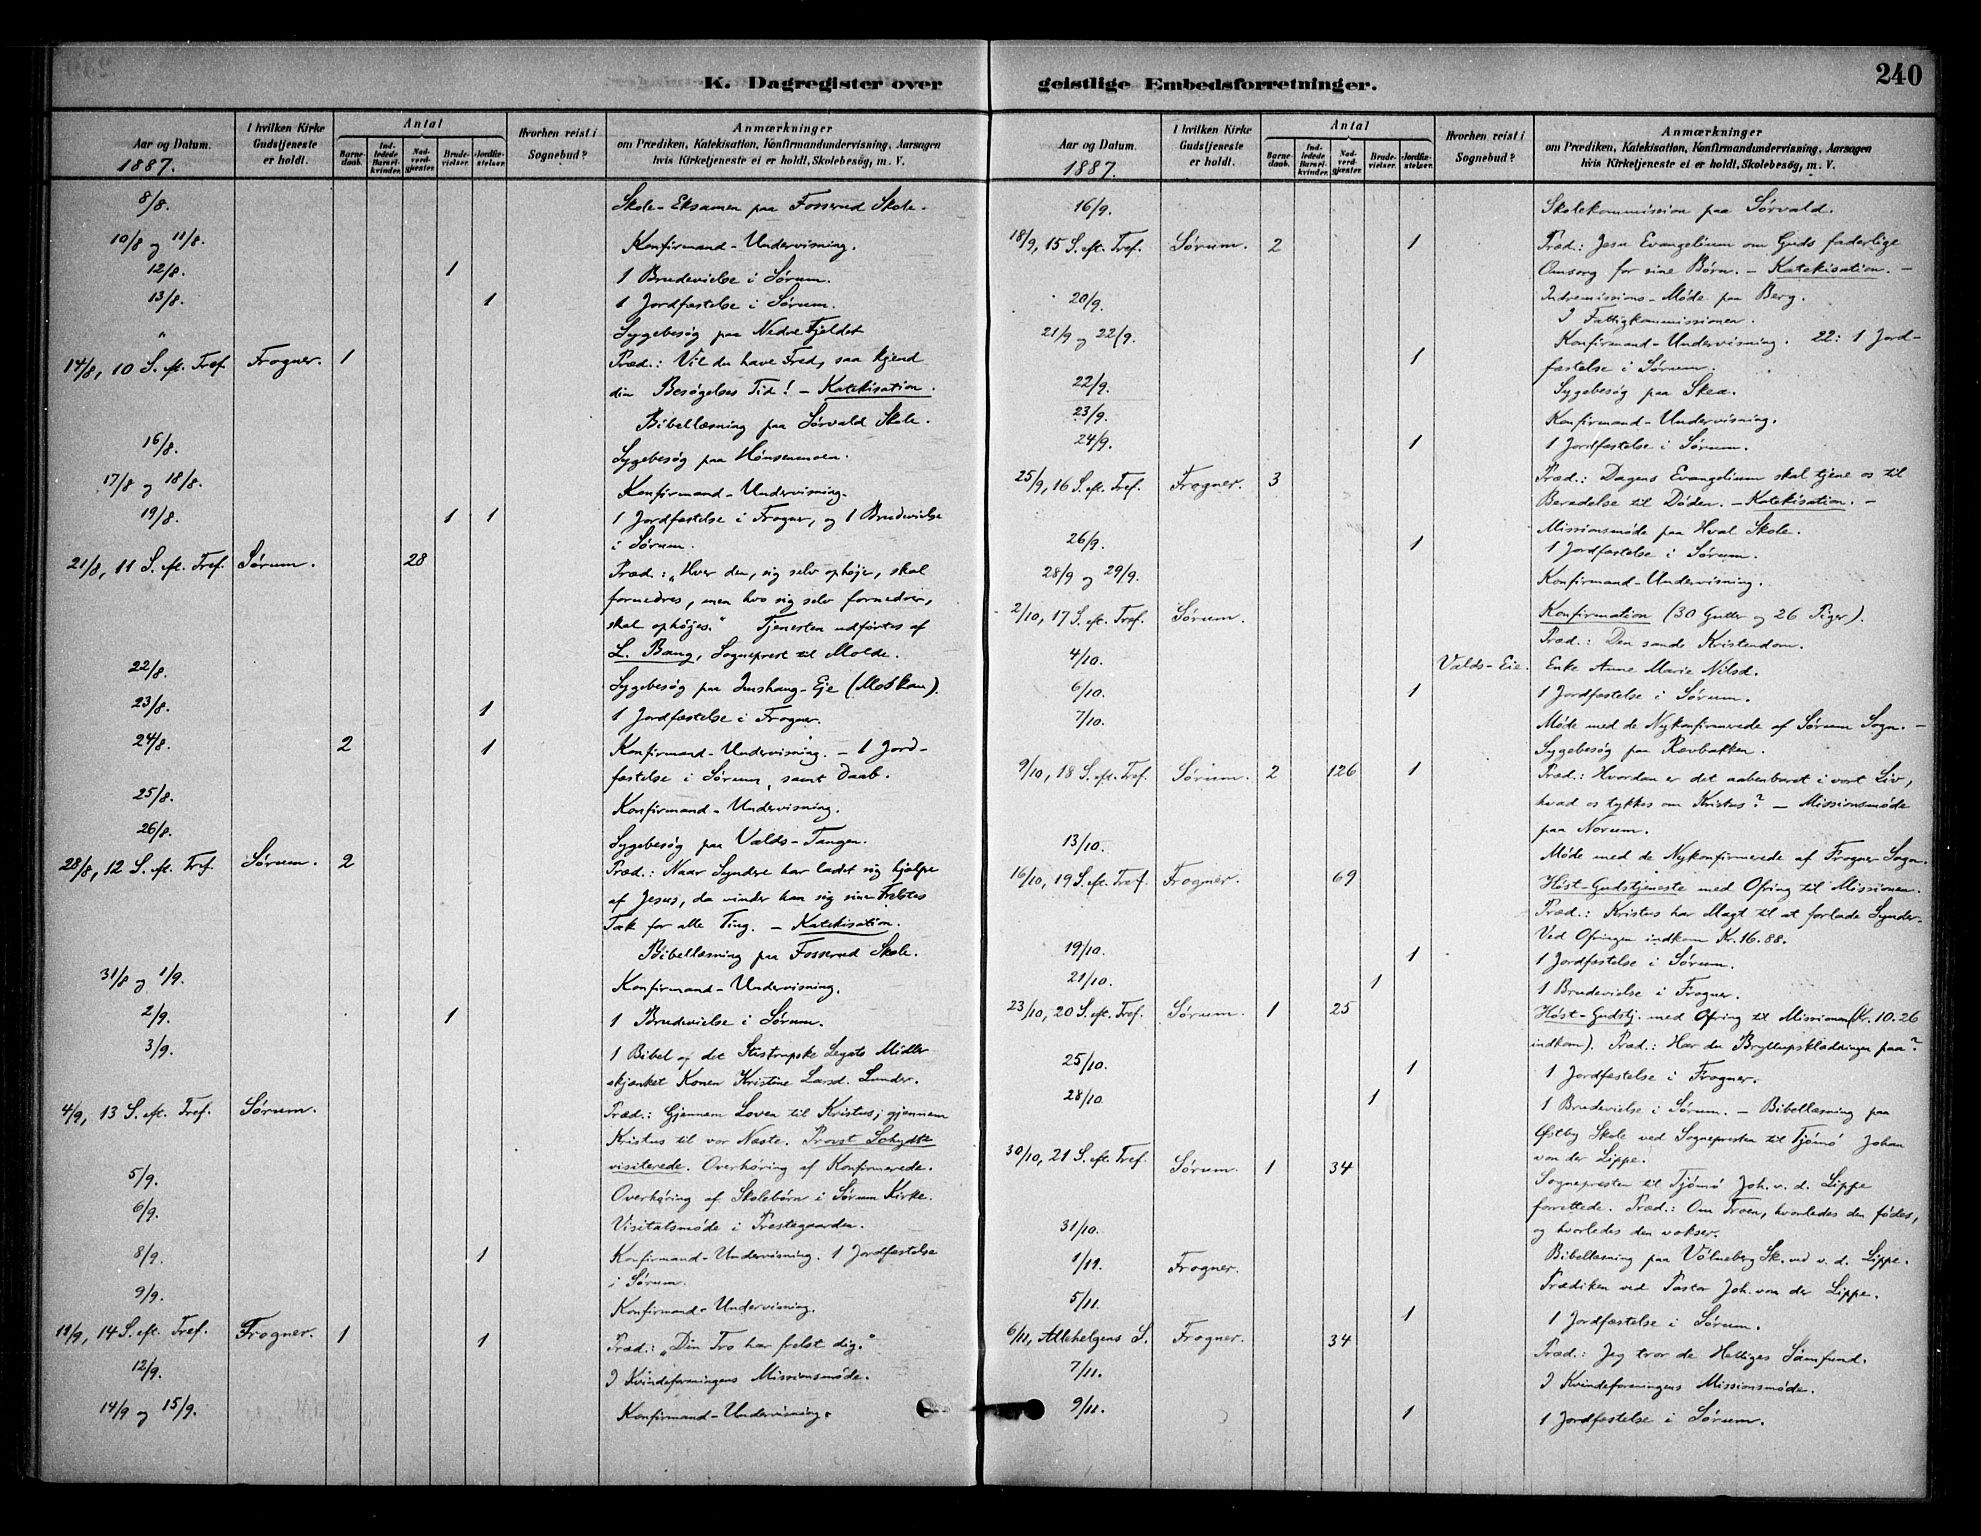 K. Dagregister over
Aar og Datum.
1887.
I hvilken Kirke Gudstjeneste er holdt.
Antal
Barnedaab. Indledede Barselkvinder. Nadverdgjester. Brudevielser. Jordfæstelser.
Hvorhen reist i Sognebud?
Anmærkninger
om Prædiken, Katekisation, Konfirmandundervisning, Aarsagen
hvis Kirketjeneste ei er holdt, Skolebesøg, m. V.
8/8. Skole-Eksamen paa Fosserud Skole.
10/8 og 11/8. Konfirmand-Undervisning.
12/8. 1 1 Brudevielse i Sørum.
13/8. 1 1 Jordfæstelse i Sørum.
" Sygebesøg paa Nedre Fjeldet
14/8, 10 S. eft. Tref. Frogner. 1 Præd.: Vil du have Fred, saa kjend
din Besøgelses Tid! – Katekisation.
Bibellæsning paa Sørvald Skole.
16/8. Sygebesøg paa Hønsenmoen.
17/8 og 18/8. Konfirmand-Undervisning.
19/8. 1 1 1 Jordfæstelse i Frogner, og 1 Brudevielse
i Sørum.
21/8, 11 S. eft. Tref. Sørum. 28 Præd.: „Hver den, sig selv ophøje, skal
fornedres, men hvo sig selv fornedrer,
skal ophøjes." Tjenesten udførtes af
L. Bang, Sogneprest til Molde.
22/8. Sygebesøg paa Imshaug-Eje (Moskau).
23/8. 1 1 Jordfæstelse i Frogner.
24/8. 2 1 Konfirmand-Undervisning. – 1 Jord-
fæstelse i Sørum, samt Daab.
25/8. Konfirmand-Undervisning.
26/8. Sygebesøg paa Valds-Tangen.
28/8, 12 S. eft. Tref. Sørum. 2 Præd.: Naar Syndere har ladet sig hjælpe
af Jesus, da vinder han sig sine Frelstes
Tak for alle Ting. – Katekisation.
Bibellæsning paa Fosserud Skole.
31/8 og 1/9. Konfirmand-Undervisning.
2/9. 1 1 Brudevielse i Sørum.
3/9. 1 Bibel af det Legats Midler
skjænket Konen Kristine Larsd. Lunder.
4/9, 13 S. eft. Tref. Sørum. Præd.: Gjennem Loven til Kristus; gjennem
Kristus til vor Næste. Provst Schydtz
visiterede. Overhøring af Konfirmerede.
5/9. Overhøring af Skolebørn i Sørum Kirke.
6/9. Visitatsmøde i Prestegaarden.
8/9. 1 Konfirmand-Undervisning. 1 Jordfæstelse
i Sørum.
9/9. Konfirmand-Undervisning.
11/9, 14 S. eft. Tref. Frogner. 1 1 Præd.: „Din Tro har frelst dig."
12/9. I Kvindeforeningens Missionsmøde.
14/9 og 15/9. Konfirmand-Undervisning.
geistlige Embedsforretninger.
240
Aar og Datum.
1887.
I hvilken Kirke Gudstjeneste er holdt.
Antal
Barnedaab. Indledede Barselkvinder. Nadverdgjester. Brudevielser. Jordfæstelser.
Hvorhen reist i Sognebud?
Anmærkninger
om Prædiken, Katekisation, Konfirmandundervisning, Aarsagen
hvis Kirketjeneste ei er holdt, Skolebesøg, m. V.
16/9. Skolekommission paa Sørvald.
18/9, 15 S. eft. Tref. Sørum. 2 1 Præd: Jesu Evangelium om Guds faderlige
Omsorg for sine Børn. – Katekisation. –
20/9. Indremissions-Møde paa Berg.
I Fattigkommissionen.
21/9 og 22/9. Konfirmand-Undervisning. 22: 1 Jord-
1 fæstelse i Sørum.
22/9. Sygebesøg paa Skea.
23/9. Konfirmand-Undervisning.
24/9. 1 1 Jordfæstelse i Sørum.
25/9, 16 S. eft. Tref. Frogner. 3 Præd.: Dagens Evangelium skal tjene os til
Beredelse til Døden. – Katekisation. –
Missionsmøde paa Hval Skole.
26/9. 1 1 Jordfæstelse i Sørum.
28/9 og 29/9. Konfirmand-Undervisning.
2/10, 17 S. eft. Tref. Sørum. Konfirmation (30 Gutter og 26 Piger).
Præd.: Den sande Kristendom.
4/10. Valds-Eie. Enke Anne Marie Nilsd.
6/10. 1 1 Jordfæstelse i Sørum.
7/10. Møde med de Nykonfirmerede af Sørum Sogn. –
Sygebesøg paa Rævbakken.
9/10, 18 S. eft. Tref. Sørum. 2 126 1 Præd.: Hvordan er det aabenbaret i vort Liv,
hvad os tykkes om Kristus? – Missionsmøde
paa Norum.
13/10. Møde med de Nykonfirmerede af Frogner Sogn.
16/10, 19 S. eft. Tref. Frogner. 69 Høst-Gudstjeneste med Ofring til Missionen.
Præd.: Kristus har Magt til at forlade Synder.
Ved Ofringen indkom Kr. 16.88.
19/10. 1 1 Jordfæstelse i Sørum.
21/10. 1 1 Brudevielse i Frogner.
23/10, 20 S. eft. Tref. Sørum. 1 25 Høst-Gudstj. med Ofring til Missionen (Kr. 10.26
indkom). Præd.: Har du Bryllupsklædningen paa?
25/10. 1 1 Jordfæstelse i Frogner.
28/10. 1 1 Brudevielse i Sørum. – Bibellæsning paa
Østby Skole ved Sognepresten til Tjømø Johan
von der Lippe.
30/10, 21 S. eft. Tref. Sørum. 1 34 Sognepresten til Tjømø Joh. v. d. Lippe
forrettede. Præd.: Om Troen, hvorledes den fødes,
og hvorledes den vokser.
31/10. Bibellæsning paa Vølneberg Sk. ved v. d. Lippe.
1/11. Frogner. Prædiken ved Pastor Joh. von der Lippe.
5/11. 1 1 Jordfæstelse i Sørum.
6/11, Allehelgens S. Frogner. 34 Præd.: Jeg tror de Helliges Samfund.
7/11. I Kvindeforeningens Missionsmøde.
9/11. 1 1 Jordfæstelse i Sørum.